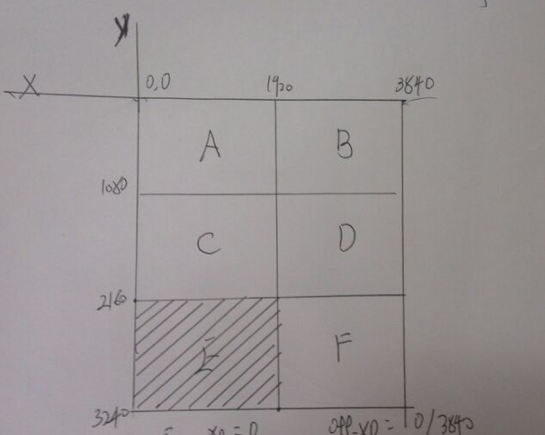 y
X 0,0 1920 3840
A B
1080
C D
2160
E F
3240
x0 = 0 off-x0 = 0/3840